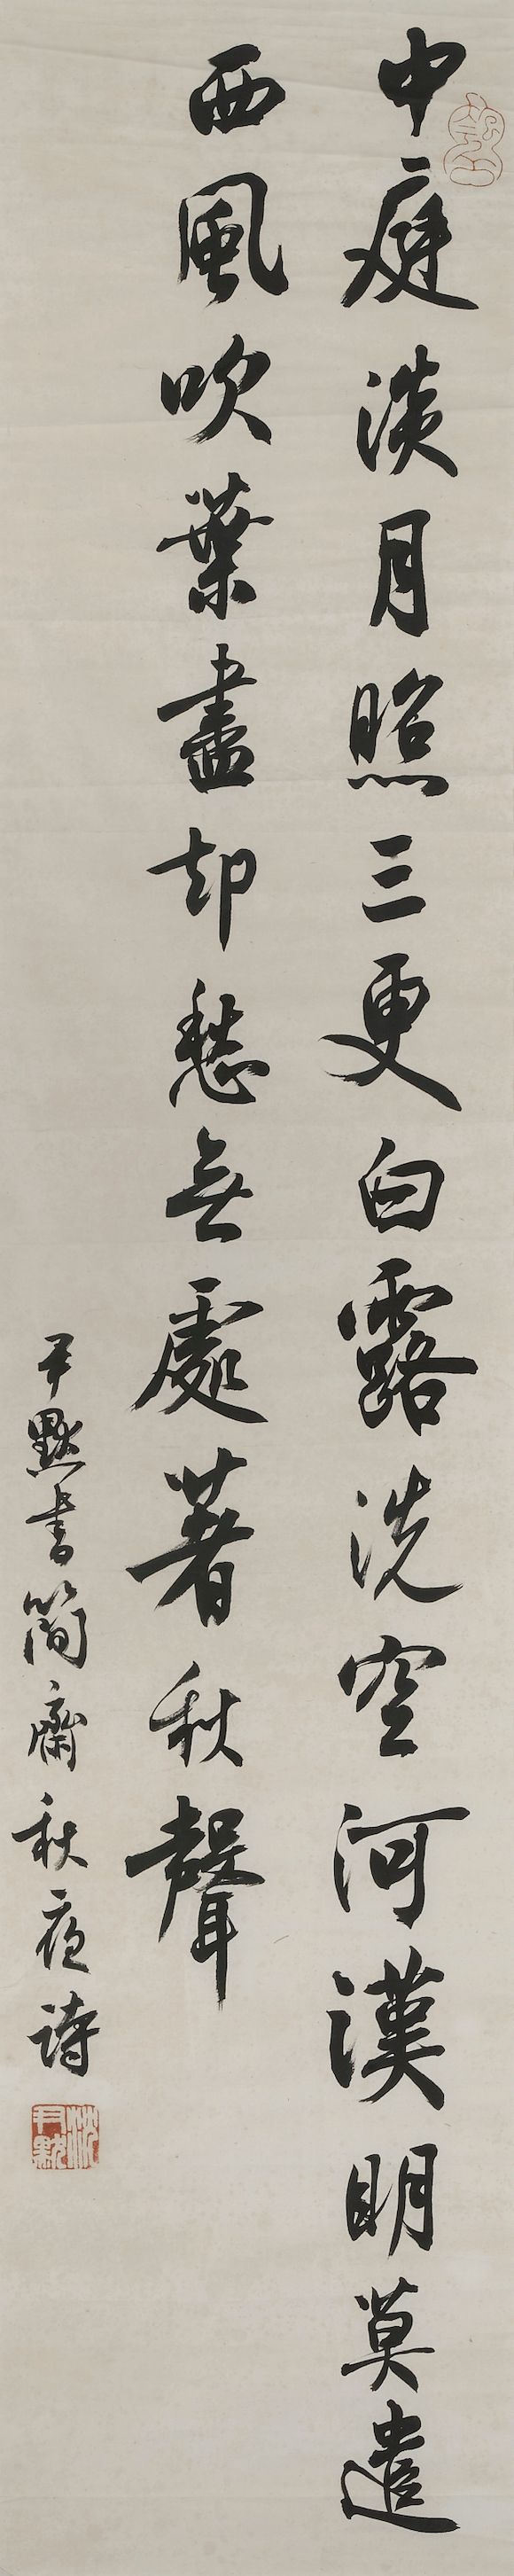 中庭淡月照三更白露洗空河漢明莫遣
西風吹葉盡却愁無處著秋聲
尹默書簡齋秋夜詩
沈尹默